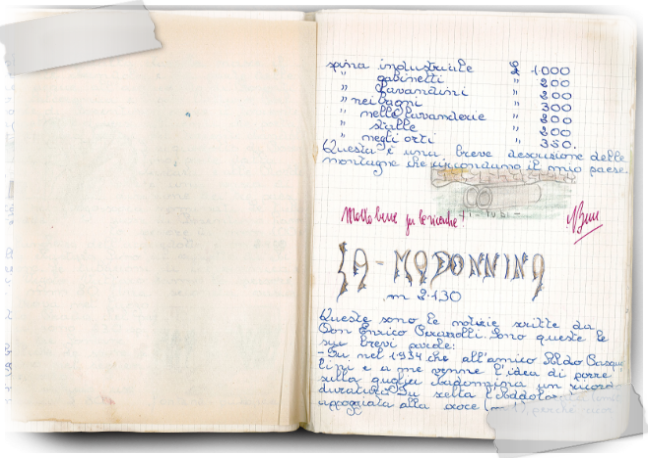 spina industriale £ 1000
" gabinetti " 200
" lavandini " 200
" nei bagni " 300
" nelle lavanderie " 200
" stalle " 200
" negli orti " 350.
Questa è una breve descrizione delle
montagne che circondano il mio paese.
- tubi -
Molto bene per le ricerche!
LA - MADONNINA
m 2.130
Queste sono le notizie scritte da
Don Enrico Sono queste le
sue brevi parole:
- Fu nel 1934 che all'amico Aldo Pasqua
lini e a me venne l'idea di porre
sulla guglia badongina un ricordo
duraturo. Fu scelta l'Addolorata
appoggiata alla croce perché